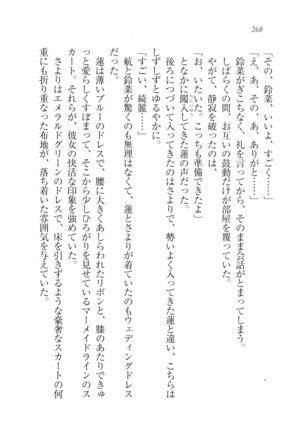 268
「その、鈴菜、いい、よ、すごく……」
「え、あ、その、あ、ありがと……」
鈴菜がぎこちなく、礼を言ってから、そのまま会話がとまってしまう。
しばらくの間、お互いの鼓動だけが部屋を覆っていた。
やがて、静寂を破ったのは、
「お、いたいた。こっちも準備できたよ」
となかに闖入してきた蓮の声だった。
後ろにつづいて入ってきたのはさよりで、勢いよく入ってきた蓮と違い、こちらは
しずしずとゆるやかに。
「すごい、綺麗……」
航と鈴菜が驚くのも無理はなくて、蓮とさよりが着ていたのもウェディングドレス
だった。
蓮は薄いブルーのドレスで、腰に大きくあしらわれたリボンと、膝のあたりできゅ
っと愛らしくすぼまって、そこから少しひろがりを見せているマーメイドラインのス
カート。それらが、彼女の快活な印象を強めていた。
さよりはエメラルドグリーンのドレスで、床を引きずるような豪奢なスカートの何
重にも折り重なった布地が、落ち着いた雰囲気を与えていた。